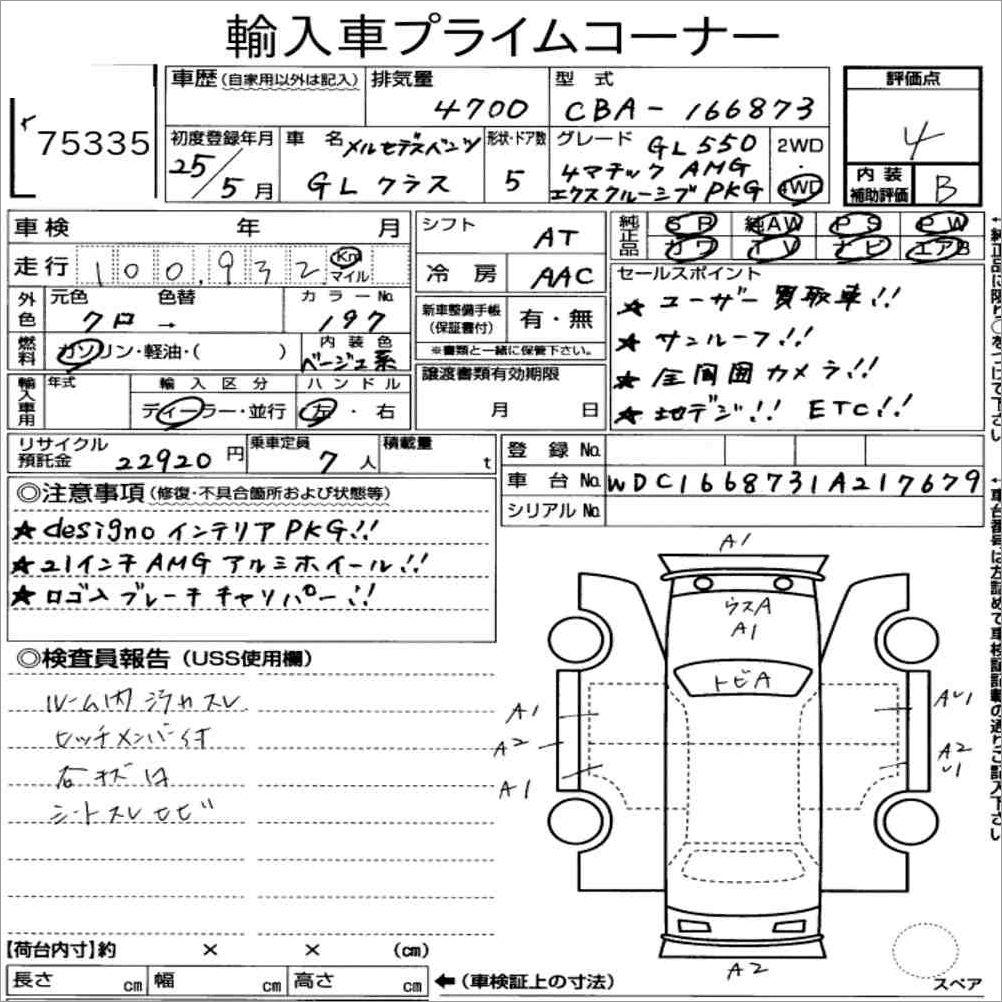 輸入車プライムコーナー
75335
車歴(自家用以外は記入)
排気量
4700
型式
CBA-166873
評価点
4
初度登録年月
25/5月
車名
メルセデスベンツ
GLクラス
形状・ドア数
5
グレード GL550
4マチック AMG
エクスクルーシブPKG
2WD
・
4WD
内装
補助評価
B
車検 年 月
走行 100,932 Km
マイル
シフト
AT
冷房
AAC
純正品
SR 純AW PS PW
カワ TV ナビ エアB
セールスポイント
★ユーザー買取車!!
★サンルーフ!!
★全周囲カメラ!!
★地デジ!! ETC!!
外色
元色 色替 カラーNo.
クロ → 197
燃料
ガソリン・軽油・( )
内装色
ベージュ系
新車整備手帳
(保証書付)
有・無
※書類と一緒に保管下さい。
輸入車用
年式
輸入区分
ディーラー・並行
ハンドル
左・右
譲渡書類有効期限
月 日
リサイクル
預託金 22920円
乗車定員
7人
積載量
t
登録No.
車台No. WDC1668731A217679
シリアルNo.
◎注意事項(修復・不具合箇所および状態等)
★designoインテリアPKG!!
★21インチAMGアルミホイール!!
★ロゴ入ブレーキキャリパー!!
◎検査員報告(USS使用欄)
ルーム内ジカスレ
ヒッチメンバー付
シートスレセビ
A1
ウスA
A1
トビA
A1
A2
A1
AU1
A2
U1
A2
スペア
【荷台内寸】約 × × (cm)
長さ cm 幅 cm 高さ cm
←(車検証上の寸法)
↑純正品に限り〇をつけて下さい
↑車台番号は左詰めで車検証記載の通りご記入下さい